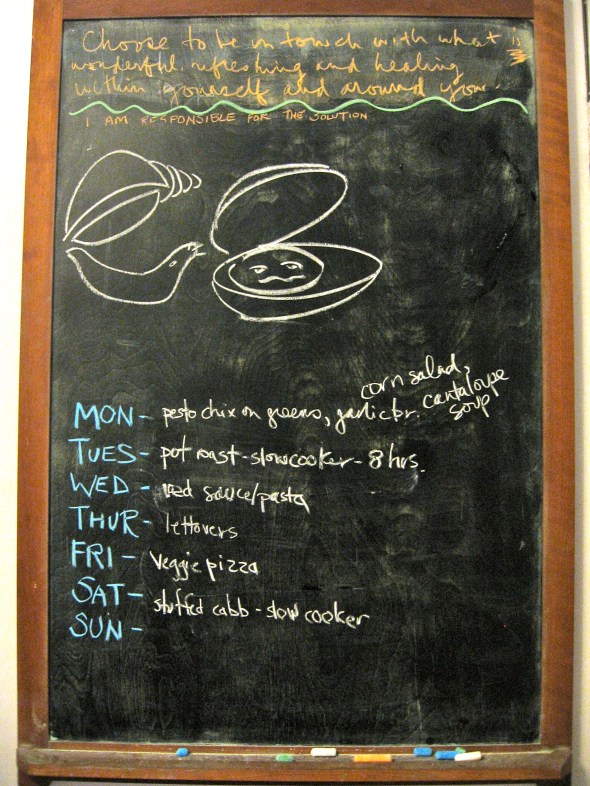 Choose to be in touch with what is
wonderful, refreshing and healing
within yourself and around you.
I AM RESPONSIBLE FOR THE SOLUTION
corn salad,
MON - pesto chix on greens, garlic br. cantaloupe
soup
TUES - pot roast - slowcooker - 8 hrs.
WED - red sauce/pasta
THUR - leftovers
FRI - veggie pizza
SAT - stuffed cabb - slow cooker
SUN -